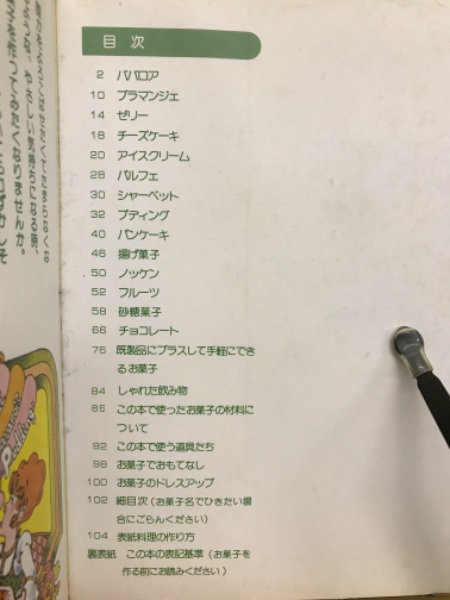 目次
2 ババロア
10 ブラマンジェ
14 ゼリー
18 チーズケーキ
20 アイスクリーム
28 パルフェ
30 シャーベット
32 プディング
40 パンケーキ
46 揚げ菓子
50 ノッケン
52 フルーツ
58 砂糖菓子
66 チョコレート
76 既製品にプラスして手軽にでき
るお菓子
84 しゃれた飲み物
86 この本で使ったお菓子の材料に
ついて
92 この本で使う道具たち
96 お菓子でおもてなし
100 お菓子のドレスアップ
102 細目次(お菓子名でひきたい場
合にごらんください)
104 表紙料理の作り方
裏表紙 この本の表記基準(お菓子を
作る前にお読みください)